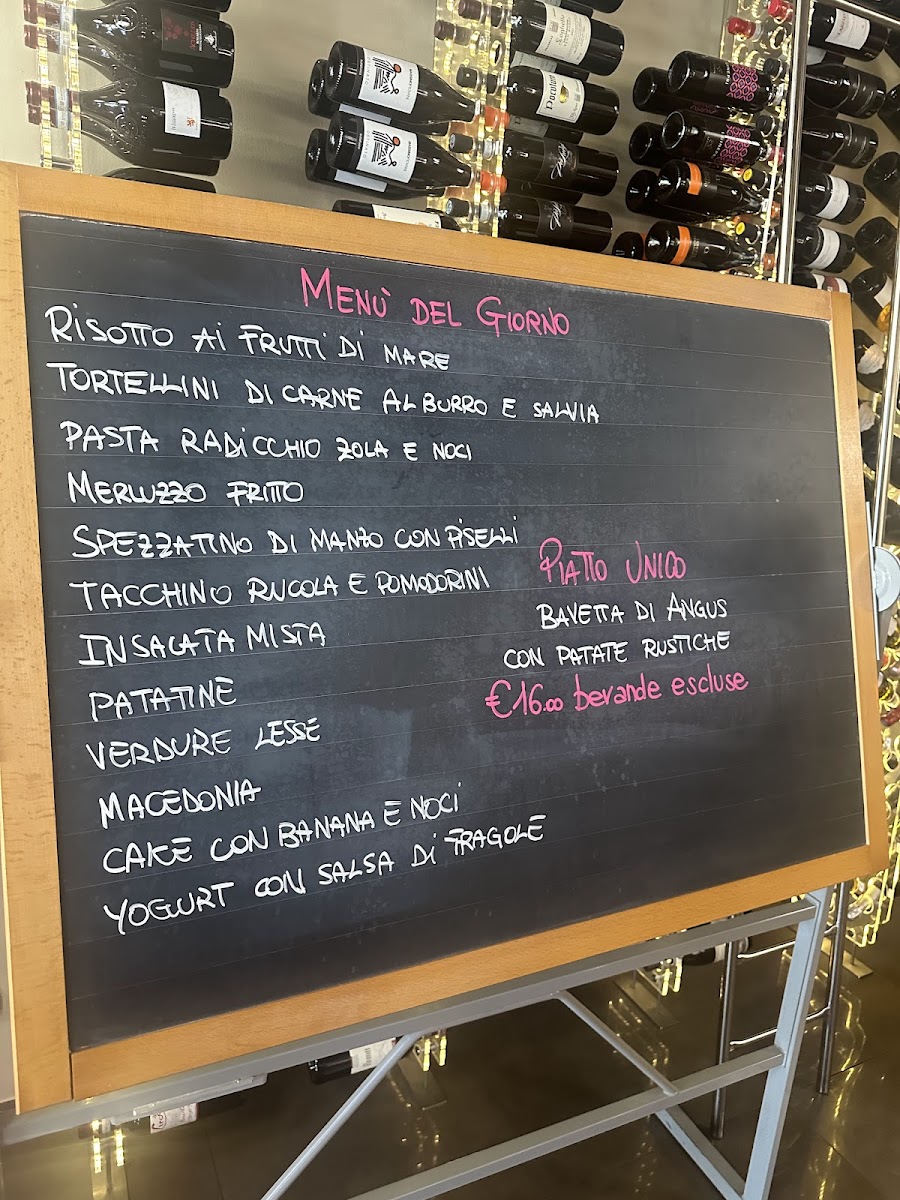 MENÙ DEL GIORNO
RISOTTO Ai FRUTTi Di MARE
TORTELLINI Di CARNE AL BURRO E SALVIA
PASTA RADiCCHIO ZOLA E NOCI
MERLUZZO FRITTO
SPEZZATINO Di MANZO CON PiSELLi
TACCHINO RUCOLA E POMODORINI
INSALATA MISTA
PATATINE
VERDURE LESSE
MACEDONIA
CAKE CON BANANA E NOCi
YOGURT CON SALSA Di FRAGOLE
PIATTO UNICO
BAVETTA Di ANGUS
CON PATATE RUSTICHE
€16.00 bevande escluse